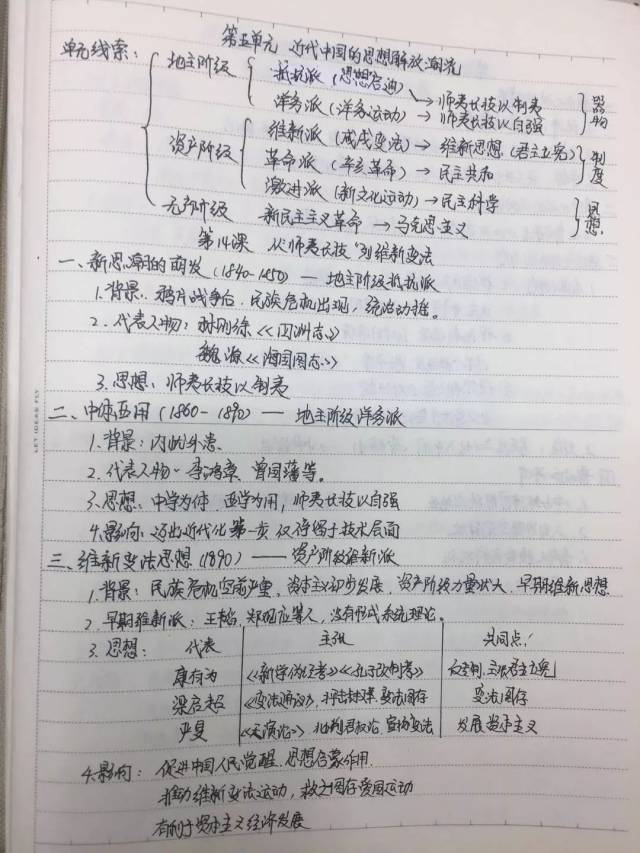 第五单元 近代中国的思想解放潮流
单元线索：
地主阶级 抵抗派（思想启迪）→师夷长技以制夷
洋务派（洋务运动）→师夷长技以自强 器物
资产阶级 维新派（戊戌变法）→维新思想（君主立宪）
革命派（辛亥革命）→民主共和 制度
激进派（新文化运动）→民主科学
无产阶级 新民主主义革命→马克思主义 思想
第14课 从"师夷长技"到维新变法
一、新思潮的萌发（1840-1850）—地主阶级抵抗派
1.背景：鸦片战争后，民族危机出现，统治动摇。
2.代表人物：林则徐《四洲志》
魏源《海国图志》
3.思想：师夷长技以制夷
二、中体西用（1860-1890）—地主阶级洋务派
1.背景：内忧外患.
2.代表人物：李鸿章、曾国藩等。
3.思想：中学为体，西学为用，师夷长技以自强
4.影响：迈出近代化第一步 仅停留于技术层面
三、维新变法思想（1890）——资产阶级维新派
1.背景：民族危机空前严重，资本主义初步发展，资产阶级力量壮大，早期维新思想
2.早期维新派：王韬、郑观应等人，没有形成系统理论。
3.思想： 代表 主张 共同点：
康有为 《新学伪经考》《孔子改制考》 君主立宪
梁启超 《变法通议》，变法图存 变法图存
严复 《天演论》 宣传变法 发展资本主义
4.影响：促进中国人民觉醒.思想启蒙作用.
推动维新变法运动，救亡图存爱国运动
有利于资本主义经济发展
LET IDEAS FLY